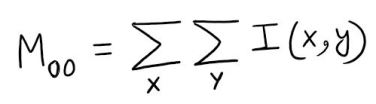 M₀₀ = ∑ₓ ∑ᵧ I(x,y)